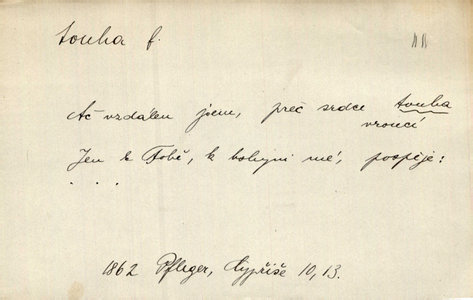 touha f.
Ač vzdálen jsem, přec srdce touha
vroucí
Jen k Tobě, k bohyni mé, pospěje:
. . .
1862 Pfleger, Cypřiše 10, 13.